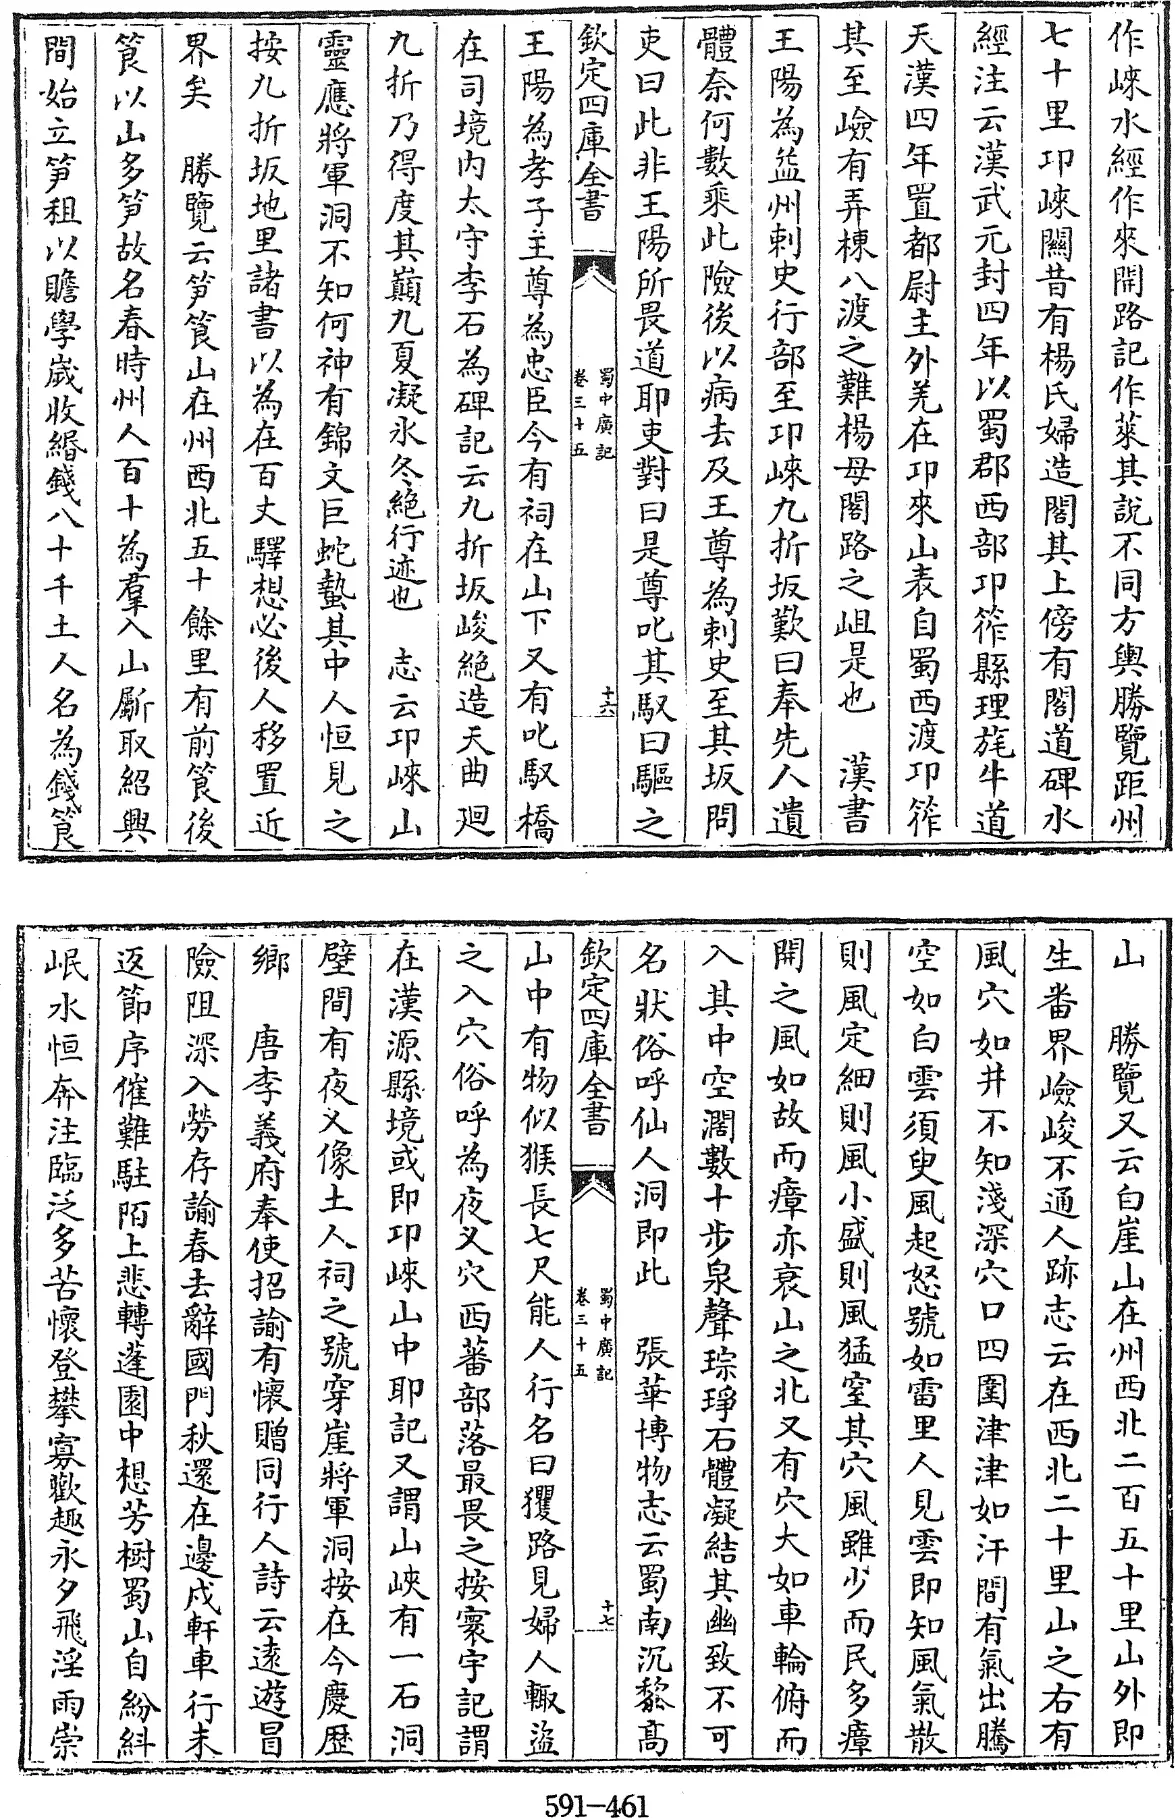 作崍水經作來開路記作萊其說不同方輿勝覽距州
七十里卭崍關昔有楊氏婦造閣其上傍有閣道碑水
經注云漢武元封四年以蜀郡西部卭筰縣理旄牛道
天漢四年置都尉主外羌在卭來山表自蜀西渡卭筰
其至嶮有弄棟八渡之難楊母閣路之岨是也　漢書
王陽為益州刺史行部至卭崍九折坂歎曰奉先人遺
體奈何數乘此險後以病去及王尊為刺史至其坂問
吏曰此非王陽所畏道耶吏對曰是尊叱其馭曰驅之
欽定四庫全書
蜀中廣記
卷三十五
十六
王陽為孝子主尊為忠臣今有祠在山下又有叱馭橋
在司境内太守李石為碑記云九折坂峻絶造天曲廻
九折乃得度其巔九夏凝氷冬絶行迹也　志云卭崍山
靈應將軍洞不知何神有錦文巨蛇蟄其中人恒見之
按九折坂地里諸書以為在百丈驛想必後人移置近
界矣　勝覽云笋筤山在州西北五十餘里有前筤後
筤以山多笋故名春時州人百十為羣入山斸取紹興
間始立笋租以贍學嵗收緡錢八十千土人名為錢筤
山　勝覽又云白崖山在州西北二百五十里山外即
生番界嶮峻不通人跡志云在西北二十里山之右有
風穴如井不知淺深穴口四圍津津如汗間有氣出騰
空如白雲須臾風起怒號如雷里人見雲即知風氣散
則風定細則風小盛則風猛窒其穴風雖少而民多瘴
開之風如故而瘴亦衰山之北又有穴大如車輪俯而
入其中空濶數十步泉聲琮琤石體凝結其幽致不可
名狀俗呼仙人洞即此　張華博物志云蜀南沉黎高
欽定四庫全書
蜀中廣記
卷三十五
十七
山中有物似猴長七尺能人行名曰玃路見婦人輙盜
之入穴俗呼為夜义穴西蕃部落最畏之按寰宇記謂
在漢源縣境或即卭崍山中耶記又謂山峽有一石洞
壁間有夜义像土人祠之號穿崖將軍洞按在今慶歴
鄉　唐李義府奉使招諭有懷贈同行人詩云遠遊冒
險阻深入勞存諭春去辭國門秋還在邊戍軒車行未
返節序催難駐陌上悲轉蓬園中想芳樹蜀山自紛糾
岷水恒奔注臨泛多苦懷登攀寡歡趣永夕飛淫雨崇
591-461